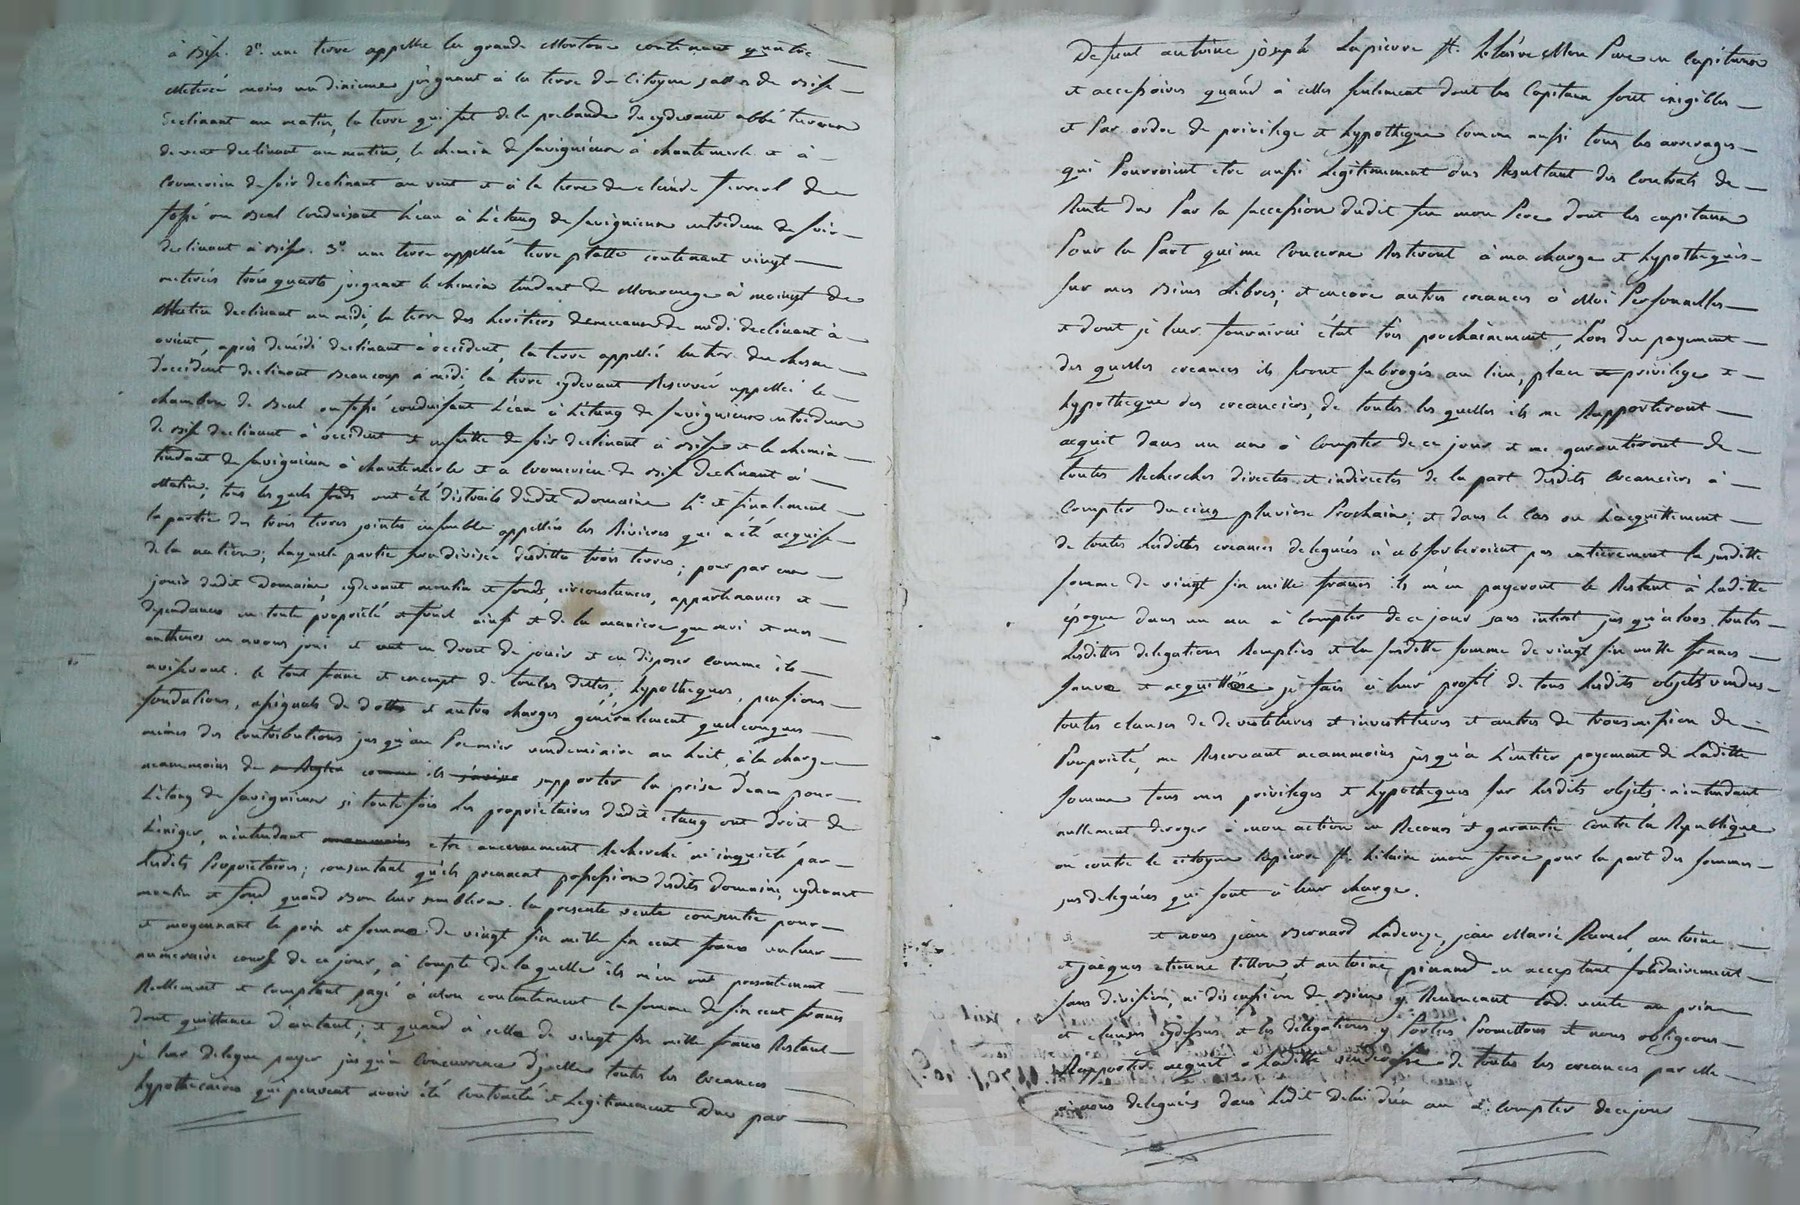 à Bise. 2°. une terre appellée la grande Mortoux contenant quatre
Meterée moins un dixieme joignant à la terre du Citoyen de Bise
declinant au matin, la terre qui fut de la prebande du cydevant abbé
de vent declinant au matin, le chemin de Savignieux à Chantemerle et à
de soir declinant au vent et à la terre de claude du
fossé ou Beal conduisant l'eau à l'étang de Savignieux entredeux de soir
declinant à Bise. 3°. une terre appellée terre platte contenant vingt
meterées trois quarts joignant le chemin tendant de à moingt de
Matin declinant au midi, la terre des heritiers de midi declinant à
orient, après demidi declinant à occident, la terre appellée du chesne
D'occident declinant Beaucoup à midi, la terre cydevant Reservée appellée le
chambon de Beal ou fossé conduisant l'eau à l'étang de Savignieux entredeux
de Bise declinant à occident et ensuitte de soir declinant à Bise et le chemin
tendant de Savignieux à chantemerle et à de Bise declinant à
Matin; tous lesquels fonds ont été distraits dudit Domaine et finalement
la partie des trois terres jointes ensemble appellées les Rivieres qui a été acquise
de la nation; laquelle partie sera divisée desdittes trois terres; pour par eux
jouir dudit Domaine, cydevant moulin et fonds, circonstances, appartenances et
dependances en toute propriété et fruit ainsi et de la maniere que moi et mes
autheurs en avons joui et eut en droit de jouir et en disposer comme ils
aviseront. le tout franc et exempt de toutes dettes, hypotheques, pensions
fondations, assignats de dottes et autres charges généralement quelconques
mêmes des contributions jusqu'au Premier vendemiaire an huit, à la charge
neammoins de ils supporter la prise d'eau pour
l'étang de Savignieux si toute fois les propriétaires dudit étang ont Droit de
l'exiger, n'entendant etre aucunement Recherché ni inquiété par
lesdits Proprietaires; consentant qu'ils prennent possession desdits domaine, cydevant
moulin et fond quand Bon leur semblera. la presente vente consentie pour
et moyennant le prix et somme de vingt six mille six cent francs valeur
numéraire cours de ce jour, à compte de laquelle ils m'en ont presentement
Reellement et comptant payé à mon contentement la somme de six cent francs
dont quittance d'autant; et quand à celle de vingt six mille francs Restant
je leur delegue payer jusqu'à Concurrence D'jcelle toutes les Creances
hypothecaires qui peuvent avoir été Contracté et Legitimement Due par
Defunt antoine joseph Lapierre St. hilaire Mon Pere en Capitaux
et accessoires quand à celles seulement dont les Capitaux sont exigibles
et Par ordre de privilege et hypotheque comme aussi tous les arrerages
qui Pourroient etre aussi Legitimement dus Resultant des Contrats de
Rente Dus Par la succession dudit feu mon Pere dont les capitaux
Pour la Part qui me Concerne Resteront à ma charge et hypothequés
sur mes Biens Libres; et encore autres creances à Moi Personnelles
et dont je leur fournirai état très prochainement, lors du payement
des quelles creances ils seront subrogés au lieu, place et privilege et
hypotheque des creanciers, de toutes les quelles ils me Rapporteront
acquit dans un an à Compter de ce jour et me garantiront de
toutes Recherches directes et indirectes de la part desdits Creanciers à
Compter du cinq pluviose Prochain; et dans le Cas ou l'acquittement
de toutes Lesdittes creances deleguées n'absorberoient pas entierement la susditte
somme de vingt six mille francs ils m'en payeront le Restant à Laditte
époque dans un an à compter de ce jour sans intérêt jusqu'alors. toutes
Lesdittes delegations Remplies et la susditte somme de vingt six mille francs
et acquittée je fais à leur profit de tous lesdits objets vendus
toutes clauses de devestitures et investitures et autres de transmission de
Proprieté, me Reservant neammoins jusqu'à L'entier payement de Laditte
somme tous mes privileges et hypotheques sur lesdits objets. n'entendant
nullement deroger à mon action en Recours et garantie contre la Republique
ou contre le citoyen Lapierre St. hilaire mon frere pour la part des sommes
sus deleguées qui sont à leur charge.
et nous jean Bernard Ladevèze, jean Marie Ramel, antoine
et jacques etienne tillon, et antoine pinand en acceptant solidairement
sans division, ni discussion de Biens y Renoncant lad. vente au prix
et clauses cydessus et les délégations y Portées Promettons et nous obligeons
Rapporter acquit à Laditte venderesse de toutes les creances par elle
à nous deleguées dans Ledit Delai d'un an à compter de ce jour